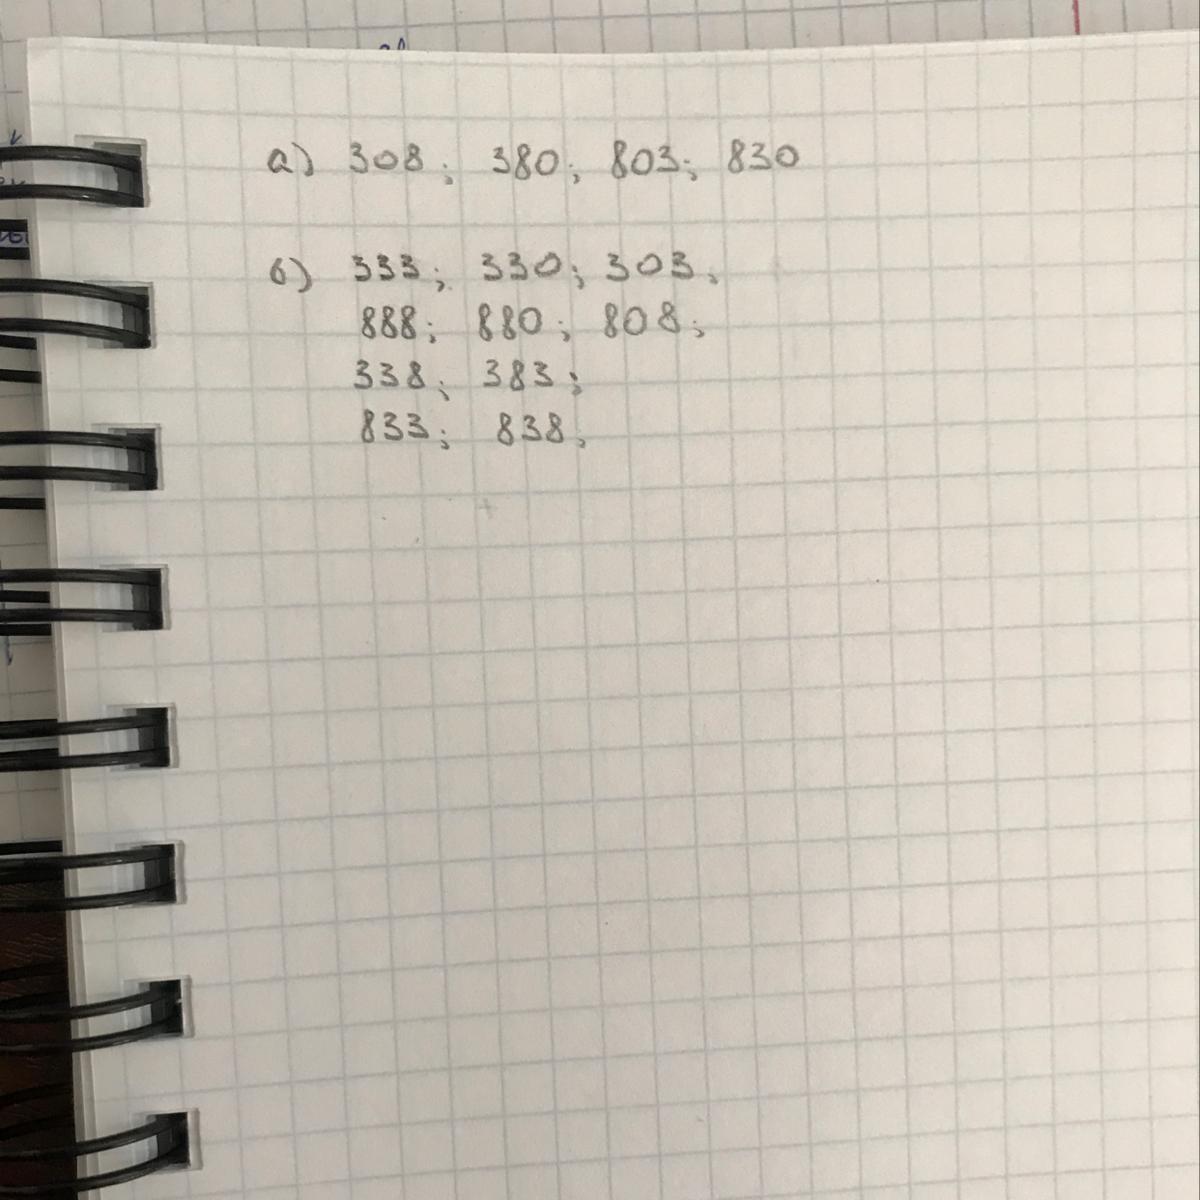 а) 308; 380; 803; 830
б) 333; 330; 303;
888; 880; 808;
338; 383;
833; 838;